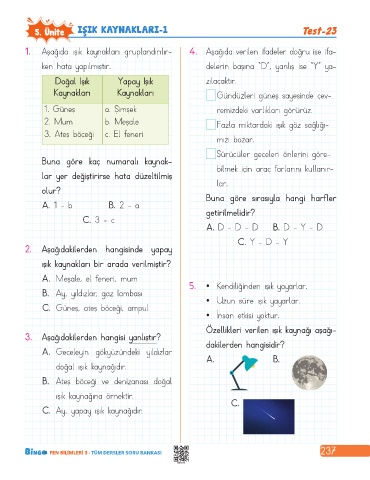 5. Ünite
IŞIK KAYNAKLARI-1
Test-23
1. Aşağıda ışık kaynakları gruplandırılır-
ken hata yapılmıştır.
Doğal Işık Kaynakları
Yapay Işık Kaynakları
1. Güneş
a. Şimşek
2. Mum
b. Meşale
3. Ateş böceği
c. El feneri
Buna göre kaç numaralı kaynak-
lar yer değiştirirse hata düzeltilmiş
olur?
A. 1 - b
B. 2 - a
C. 3 - c
2. Aşağıdakilerden hangisinde yapay
ışık kaynakları bir arada verilmiştir?
A. Meşale, el feneri, mum
B. Ay, yıldızlar, gaz lambası
C. Güneş, ateş böceği, ampul
3. Aşağıdakilerden hangisi yanlıştır?
A. Geceleyin gökyüzündeki yıldızlar
doğal ışık kaynağıdır.
B. Ateş böceği ve denizanası doğal
ışık kaynağına örnektir.
C. Ay, yapay ışık kaynağıdır.
4. Aşağıda verilen ifadeler doğru ise ifa-
delerin başına "D", yanlış ise "Y" ya-
zılacaktır.
Gündüzleri güneş sayesinde çev-
remizdeki varlıkları görürüz.
Fazla miktardaki ışık göz sağlığı-
mızı bozar.
Sürücüler geceleri önlerini göre-
bilmek için araç farlarını kullanır-
lar.
Buna göre sırasıyla hangi harfler
getirilmelidir?
A. D - D - D
B. D - Y - D
C. Y - D - Y
5. • Kendiliğinden ışık yayarlar.
• Uzun süre ışık yayarlar.
• İnsan etkisi yoktur.
Özellikleri verilen ışık kaynağı aşağı-
dakilerden hangisidir?
A.
B.
C.
BİNGO FEN BİLİMLERİ 3 - TÜM DERSLER SORU BANKASI
237